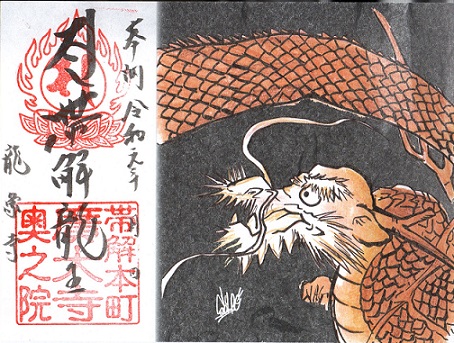 令和元年
帯解龍王
龍象寺
帯解本町
龍象寺
奥之院